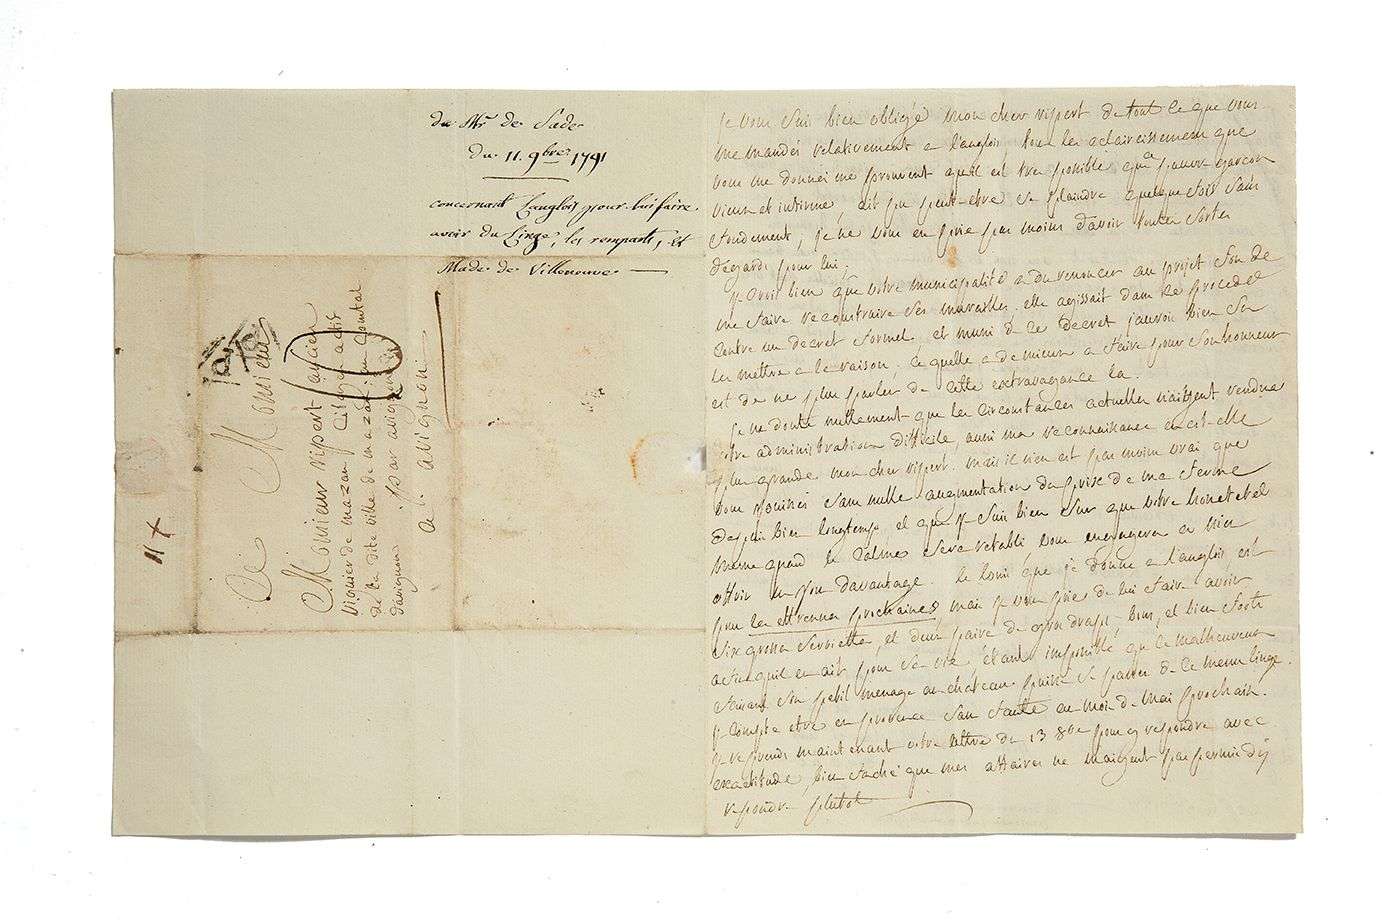 du Mr de Sade
du 11. 9bre 1791
concernant Langlois pour lui faire
avoir du Linge, les remparts, et
Made de Villeneuve
A Monsieur
Monsieur ripert ancien
viguier de mazan
de la dite ville de mazan comtat
davignon par avignon
a avignon
je vous suis bien obligé mon cher ripert de tout ce que vous
me mandés relativement a langlois tous les eclaircissement que
vous me donnés me prouvent quil est tres possible que ce pauvre garcon
vieux et infirme, ait pu peut-etre se plaindre quelque fois sans
fondement, je ne vous en prie pas moins davoir toutes sortes
degards pour lui,
je crois bien que votre municipalité a du renoncer au projet de
me faire reconstruire ses murailles. elle agissait dans ce procedé
contre un decret formel et muni de ce decret jaurois bien su
les mettre a la raison. ce quelle a de mieux a faire pour son honneur
est de ne plus parler de cette extravagance la.
je ne doute nullement que les circonstances actuelles naissent rendu
votre administration difficile, aussi ma reconnaissance en est-elle
plus grande mon cher ripert. mais il nen est pas moins vrai que
vous jouissés sans nulle augmentation du prix de ma ferme
depuis bien longtemps, et que je suis bien sur que votre honetteté
meme quand le calme sera retabli vous engagera a men
offrir un peu davantage. le louis que je donne a langlois est
pour les ettrennes prochaines, mais je vous prie de lui faire avoir
six grosses serviettes, et deux paire de gros draps, bons, et bien forts
afin quil en ait pour sa vie etant impossible que ce malheureux
tenant son petit menage au chateau puisse se passer de ce menu linge.
je compte etre en provence sans faute au mois de mai prochain.
je reprends maintenant votre lettre du 13 8bre pour y repondre avec
exactitude, bien faché que mes affaires ne maiyent pas permis dy
repondre plutot